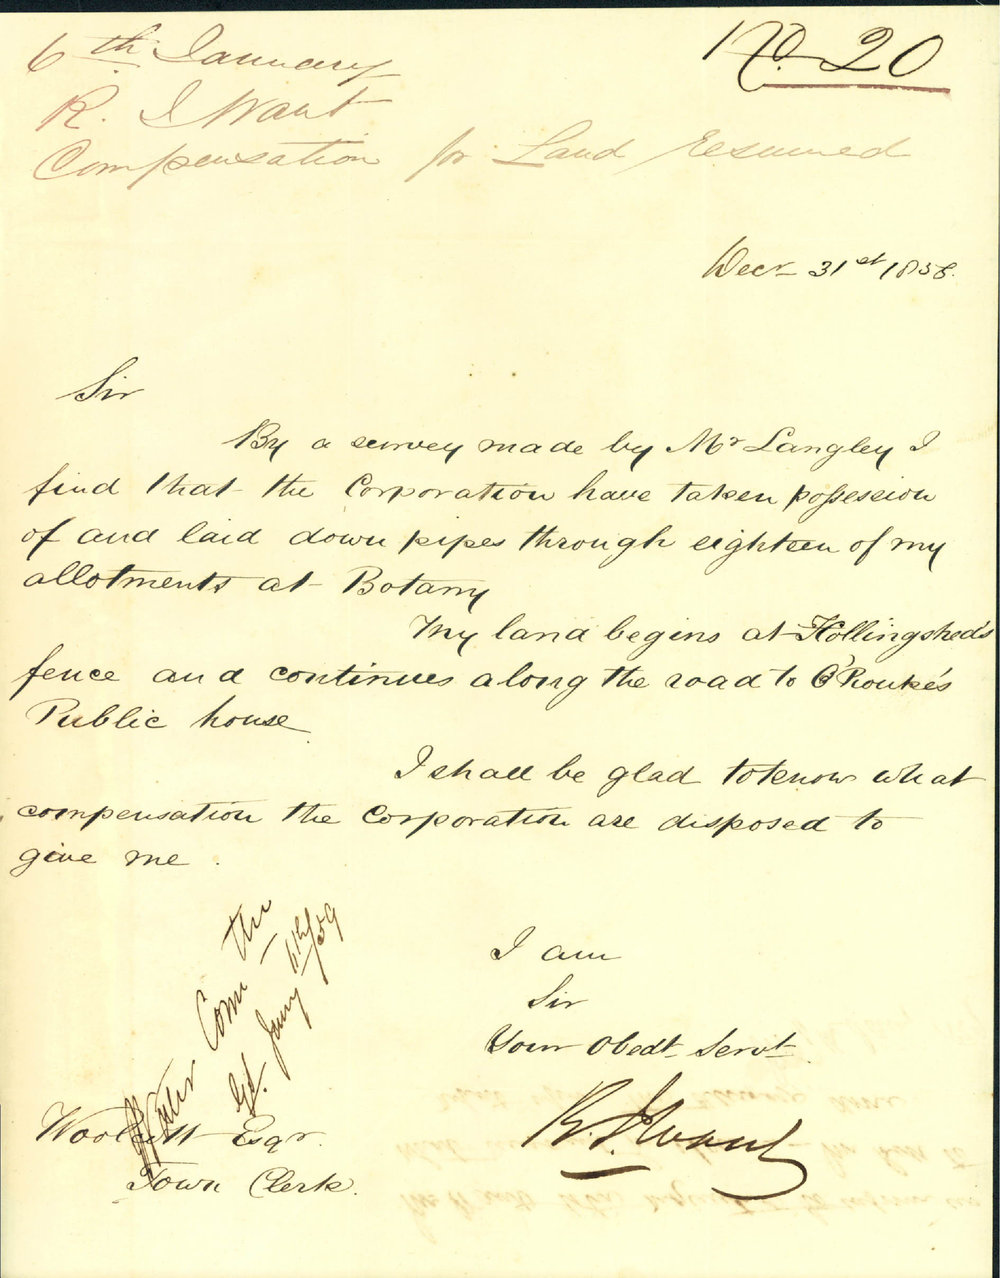 6th January
R. J Want
Compensation for Land resumed
No. 20
Decr 31st 1858.
Sir
By a survey made by Mr Langley I
find that the Corporation have taken possession
of and laid down pipes through eighteen of my
allotments at Botany
My land begins at Hollingshed's
fence and continues along the road to O'Rouke's
Public house
I shall be glad to know what
compensation the Corporation are disposed to
give me.
I am
Sir
Your Obedt Servt
R. J Want
Woolcott Esqr.
Town Clerk.
Water Com the
Jany 11th/59